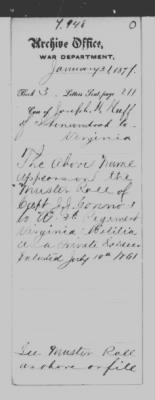 7.946
Archive Office,
WAR DEPARTMENT,
January 31 1879.
Book 3. Letters Sent page 211
Case of Joseph H Huff
of Shenandoah Co
Virginia
The above name
appears on the
Muster Roll of
Capt
Regiment
Virginia Militia
as a private Soldier
Enlisted July 10th 1861
See Muster Roll
as above or file